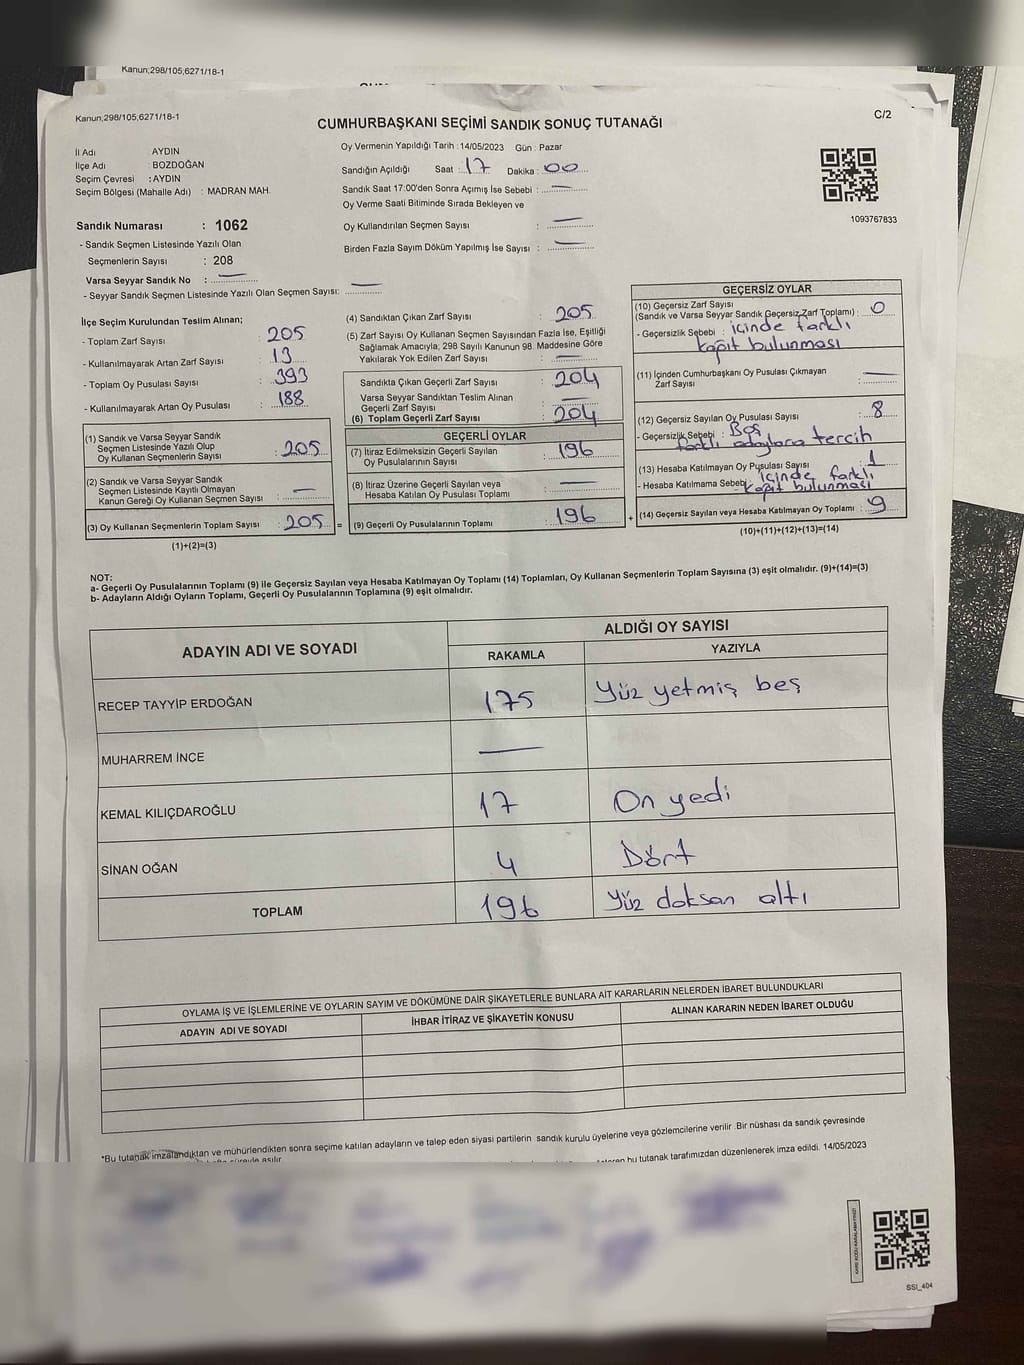 Kanun;298/105,6271/18-1
Kanun;298/105,6271/18-1
C/2
CUMHURBAŞKANI SEÇİMİ SANDIK SONUÇ TUTANAĞI
İl Adı : AYDIN
İlçe Adı : BOZDOĞAN
Seçim Çevresi : AYDIN
Seçim Bölgesi (Mahalle Adı) : MADRAN MAH.
Oy Vermenin Yapıldığı Tarih :14/05/2023 Gün : Pazar
Sandığın Açıldığı Saat : 17 Dakika : 00
Sandık Saat 17:00'den Sonra Açımış İse Sebebi : —
Oy Verme Saati Bitiminde Sırada Bekleyen ve
Oy Kullandırılan Seçmen Sayısı : —
Birden Fazla Sayım Döküm Yapılmış İse Sayısı : —
1093767833
Sandık Numarası : 1062
- Sandık Seçmen Listesinde Yazılı Olan
Seçmenlerin Sayısı : 208
Varsa Seyyar Sandık No : —
- Seyyar Sandık Seçmen Listesinde Yazılı Olan Seçmen Sayısı: —
İlçe Seçim Kurulundan Teslim Alınan;
- Toplam Zarf Sayısı : 205
- Kullanılmayarak Artan Zarf Sayısı : 13
- Toplam Oy Pusulası Sayısı : 393
- Kullanılmayarak Artan Oy Pusulası : 188
(1) Sandık ve Varsa Seyyar Sandık
Seçmen Listesinde Yazılı Olup
Oy Kullanan Seçmenlerin Sayısı : 205
(2) Sandık ve Varsa Seyyar Sandık
Seçmen Listesinde Kayıtlı Olmayan
Kanun Gereği Oy Kullanan Seçmen Sayısı : —
(3) Oy Kullanan Seçmenlerin Toplam Sayısı : 205 =
(1)+(2)=(3)
(4) Sandıktan Çıkan Zarf Sayısı : 205
(5) Zarf Sayısı Oy Kullanan Seçmen Sayısından Fazla İse, Eşitliği
Sağlamak Amacıyla; 298 Sayılı Kanunun 98. Maddesine Göre
Yakılarak Yok Edilen Zarf Sayısı : —
Sandıkta Çıkan Geçerli Zarf Sayısı : 204
Varsa Seyyar Sandıktan Teslim Alınan
Geçerli Zarf Sayısı : —
(6) Toplam Geçerli Zarf Sayısı : 204
GEÇERLİ OYLAR
(7) İtiraz Edilmeksizin Geçerli Sayılan
Oy Pusulalarının Sayısı : 196
(8) İtiraz Üzerine Geçerli Sayılan veya
Hesaba Katılan Oy Pusulası Toplamı : —
(9) Geçerli Oy Pusulalarının Toplamı : 196 +
GEÇERSİZ OYLAR
(10) Geçersiz Zarf Sayısı
(Sandık ve Varsa Seyyar Sandık Geçersiz Zarf Toplamı) : 0
- Geçersizlik Sebebi : içinde farklı
kağıt bulunması
(11) İçinden Cumhurbaşkanı Oy Pusulası Çıkmayan
Zarf Sayısı : —
(12) Geçersiz Sayılan Oy Pusulası Sayısı : 8
- Geçersizlik Sebebi : Boş
farklı adaylara tercih
(13) Hesaba Katılmayan Oy Pusulası Sayısı : 1
- Hesaba Katılmama Sebebi : içinde farklı
kağıt bulunması
(14) Geçersiz Sayılan veya Hesaba Katılmayan Oy Toplamı : 9
(10)+(11)+(12)+(13)=(14)
NOT:
a- Geçerli Oy Pusulalarının Toplamı (9) ile Geçersiz Sayılan veya Hesaba Katılmayan Oy Toplamı (14) Toplamları, Oy Kullanan Seçmenlerin Toplam Sayısına (3) eşit olmalıdır. (9)+(14)=(3)
b- Adayların Aldığı Oyların Toplamı, Geçerli Oy Pusulalarının Toplamına (9) eşit olmalıdır.
ADAYIN ADI VE SOYADI
ALDIĞI OY SAYISI
RAKAMLA YAZIYLA
RECEP TAYYİP ERDOĞAN 175 Yüz yetmiş beş
MUHARREM İNCE —
KEMAL KILIÇDAROĞLU 17 On yedi
SİNAN OĞAN 4 Dört
TOPLAM 196 Yüz doksan altı
OYLAMA İŞ VE İŞLEMLERİNE VE OYLARIN SAYIM VE DÖKÜMÜNE DAİR ŞİKAYETLERLE BUNLARA AİT KARARLARIN NELERDEN İBARET BULUNDUKLARI
ADAYIN ADI VE SOYADI İHBAR İTİRAZ VE ŞİKAYETİN KONUSU ALINAN KARARIN NEDEN İBARET OLDUĞU
*Bu tutanak imzalandıktan ve mühürlendikten sonra seçime katılan adayların ve talep eden siyasi partilerin sandık kurulu üyelerine veya gözlemcilerine verilir .Bir nüshası da sandık çevresinde
bu tutanak tarafımızdan düzenlenerek imza edildi. 14/05/2023
SSI_404